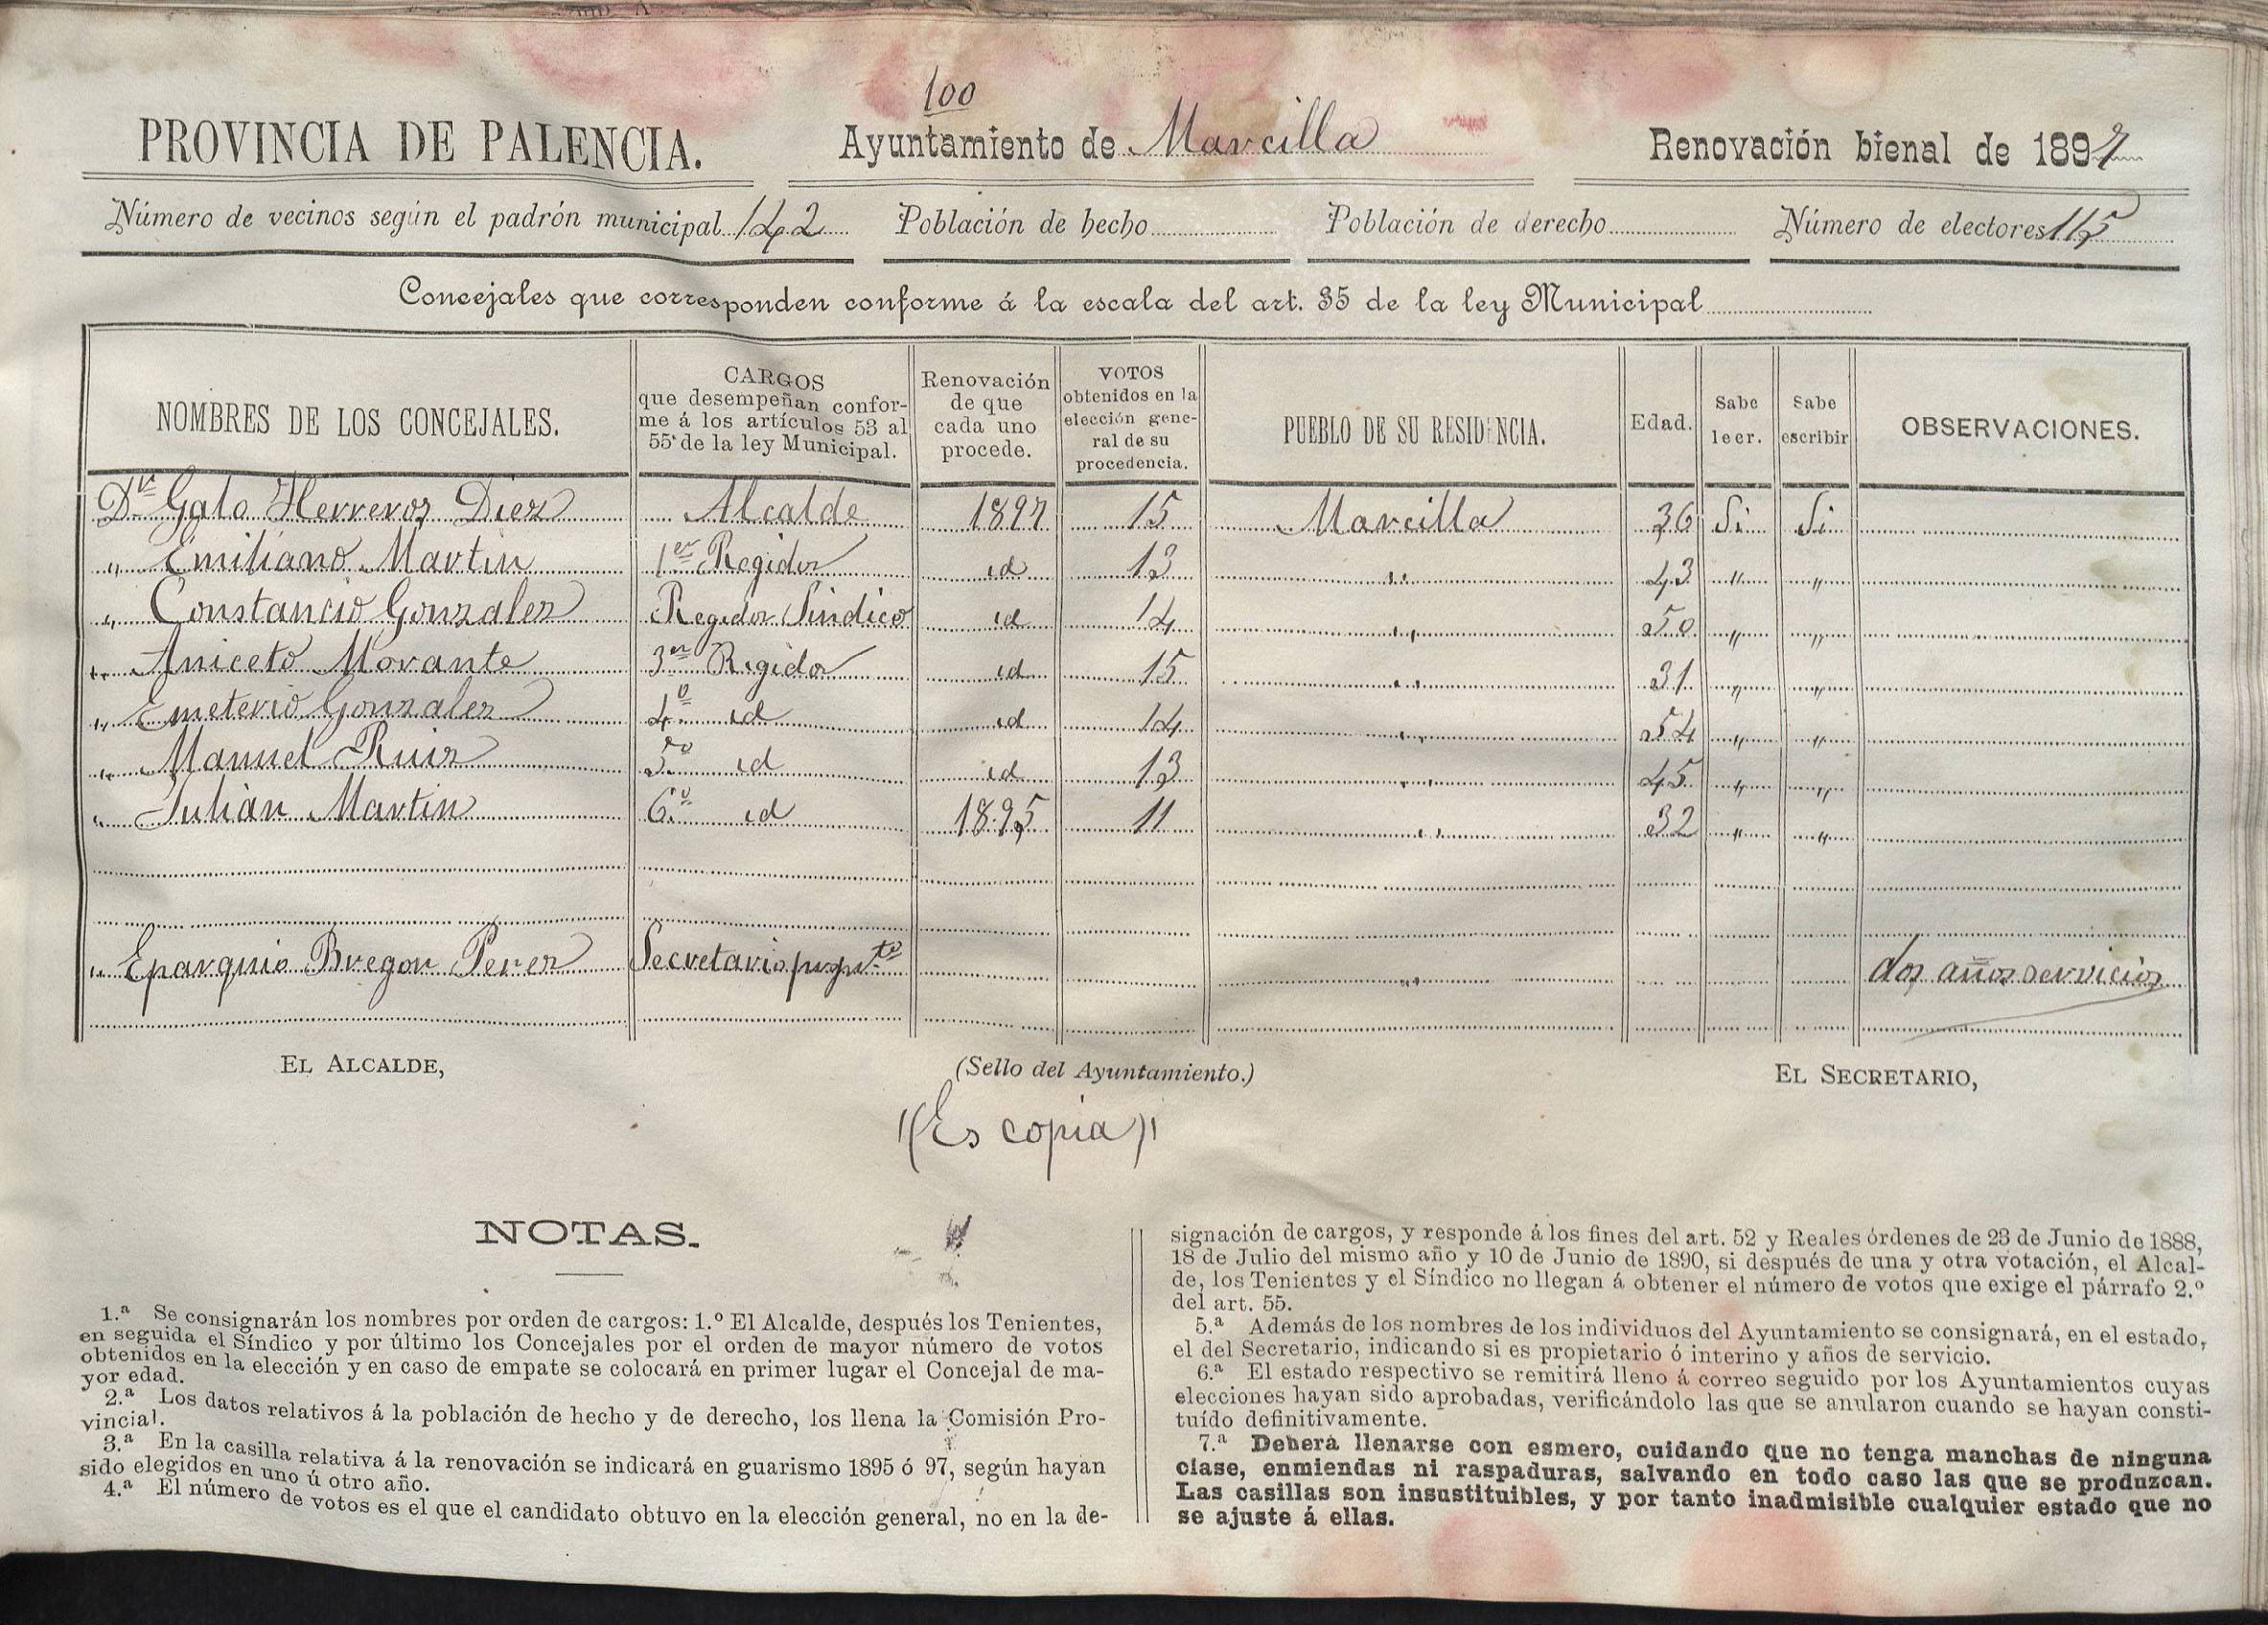 100
PROVINCIA DE PALENCIA. Ayuntamiento de Marcilla Renovación bienal de 1897
Número de vecinos según el padrón municipal 142 Población de hecho Población de derecho Número de electores 115
Concejales que corresponden conforme á la escala del art. 35 de la ley Municipal
NOMBRES DE LOS CONCEJALES.
CARGOS
que desempeñan confor-
me á los artículos 53 al
55 de la ley Municipal.
Renovación
de que
cada uno
procede.
VOTOS
obtenidos en la
elección gene-
ral de su
procedencia.
PUEBLO DE SU RESIDENCIA.
Edad.
Sabe
leer.
Sabe
escribir
OBSERVACIONES.
Dn Galo Herreros Diez Alcalde 1897 15 Marcilla 36 Si Si
" Emiliano Martin 1er Regidor id 13 " 43 " "
" Constancio Gonzalez Regidor Sindico id 14 " 50 " "
" Aniceto Morante 3er Regidor id 15 " 31 " "
" Emeterio Gonzalez 4º id id 14 " 54 " "
" Manuel Ruiz 5º id id 13 " 45 " "
" Julián Martin 6º id 1895 11 " 32 " "
" Eparquio Bregon Perez Secretario propto " dos años servicios
EL ALCALDE, (Sello del Ayuntamiento.) EL SECRETARIO,
"(Es copia)"
NOTAS.
1.ª Se consignarán los nombres por orden de cargos: 1.º El Alcalde, después los Tenientes,
en seguida el Síndico y por último los Concejales por el orden de mayor número de votos
obtenidos en la elección y en caso de empate se colocará en primer lugar el Concejal de ma-
yor edad.
2.ª Los datos relativos á la población de hecho y de derecho, los llena la Comisión Pro-
vincial.
3.ª En la casilla relativa á la renovación se indicará en guarismo 1895 ó 97, según hayan
sido elegidos en uno ú otro año.
4.ª El número de votos es el que el candidato obtuvo en la elección general, no en la de-
signación de cargos, y responde á los fines del art. 52 y Reales órdenes de 23 de Junio de 1888,
18 de Julio del mismo año y 10 de Junio de 1890, si después de una y otra votación, el Alcal-
de, los Tenientes y el Síndico no llegan á obtener el número de votos que exige el párrafo 2.º
del art. 55.
5.ª Además de los nombres de los individuos del Ayuntamiento se consignará, en el estado,
el del Secretario, indicando si es propietario ó interino y años de servicio.
6.ª El estado respectivo se remitirá lleno á correo seguido por los Ayuntamientos cuyas
elecciones hayan sido aprobadas, verificándolo las que se anularon cuando se hayan consti-
tuído definitivamente.
7.ª Deberá llenarse con esmero, cuidando que no tenga manchas de ninguna
clase, enmiendas ni raspaduras, salvando en todo caso las que se produzcan.
Las casillas son insustituibles, y por tanto inadmisible cualquier estado que no
se ajuste á ellas.